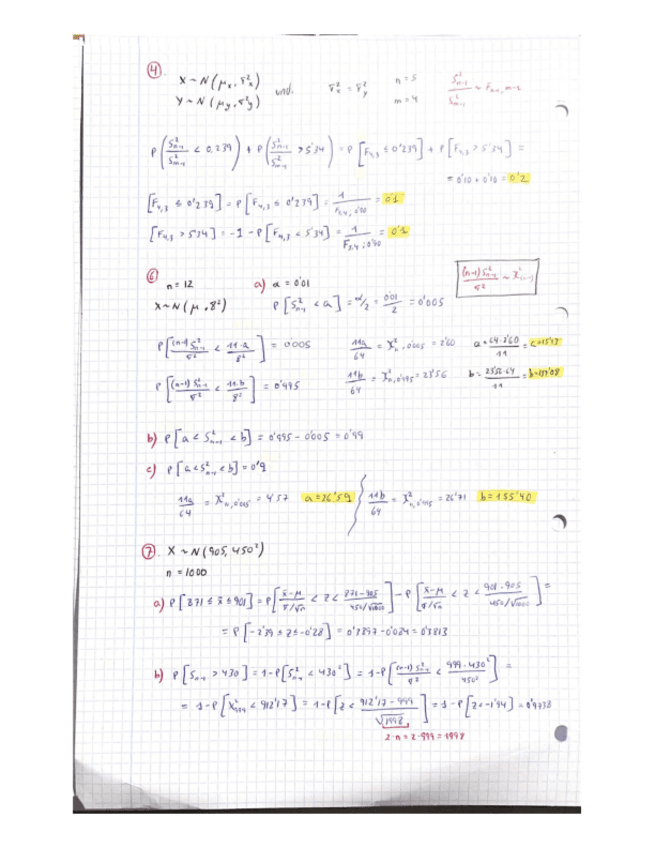 ④. X ~ N(μx, σ²x) ind. σ²x = σ²y n = 5 S²n-1 / S²m-1 ~ Fn-1, m-1
Y ~ N(μy, σ²y) m = 4
P(S²n-1/S²m-1 < 0,239) + P(S²n-1/S²m-1 > 5'34) = P[F4,3 ≤ 0'239] + P[F4,3 > 5'34] =
= 0'10 + 0'10 = 0'2
[F4,3 ≤ 0'239] = P[F4,3 ≤ 0'239] = 1/F3,4; 0'90 = 0'1
[F4,3 > 5'34] = -1 - P[F4,3 < 5'34] = 1/F3,4; 0'90 = 0'1
⑥ n = 12 a) α = 0'01 (n-1)S²n-1 / σ² ~ X²n-1
X ~ N(μ, 8²) P[S²n-1 < a] = α/2 = 0'01/2 = 0'005
P[(n-1)S²n-1/σ² < 11·a/8²] = 0'005 11a/64 = X²11, 0'005 = 2'60 a = 64·2'60/11 = a=15'13
P[(n-1)S²n-1/σ² < 11·b/8²] = 0'995 11b/64 = X²11, 0'995 = b =
b) P[a < S²n-1 < b] = 0'995 - 0'005 = 0'99
c) P[a < S²n-1 < b] = 0'9
11a/64 = = 4'57 a = 26'59 11b/64 = = 26'71 b = 155'40
⑦. X ~ N(905, 450²)
n = 1000
a) P[871 ≤ x̄ ≤ 901] = P[x̄-μ/σ/√n < Z < 871-905/450/√1000] - P[x̄-μ/σ/√n < Z < 901-905/450/√1000] =
= P[-2'39 ≤ Z ≤ -0'28] = 0'3897 - 0'084 = 0'3813
b) P[Sn-1 > 430] = 1-P[S²n-1 < 430²] = 1-P[(n-1)S²n-1/σ² < 999·430²/450²] =
= 1-P[X²999 < 912'17] = 1-P[Z < 912'17-999/√1998] = 1-P[Z<-1'94] = 0'9738
2·n = 2·999 = 1998